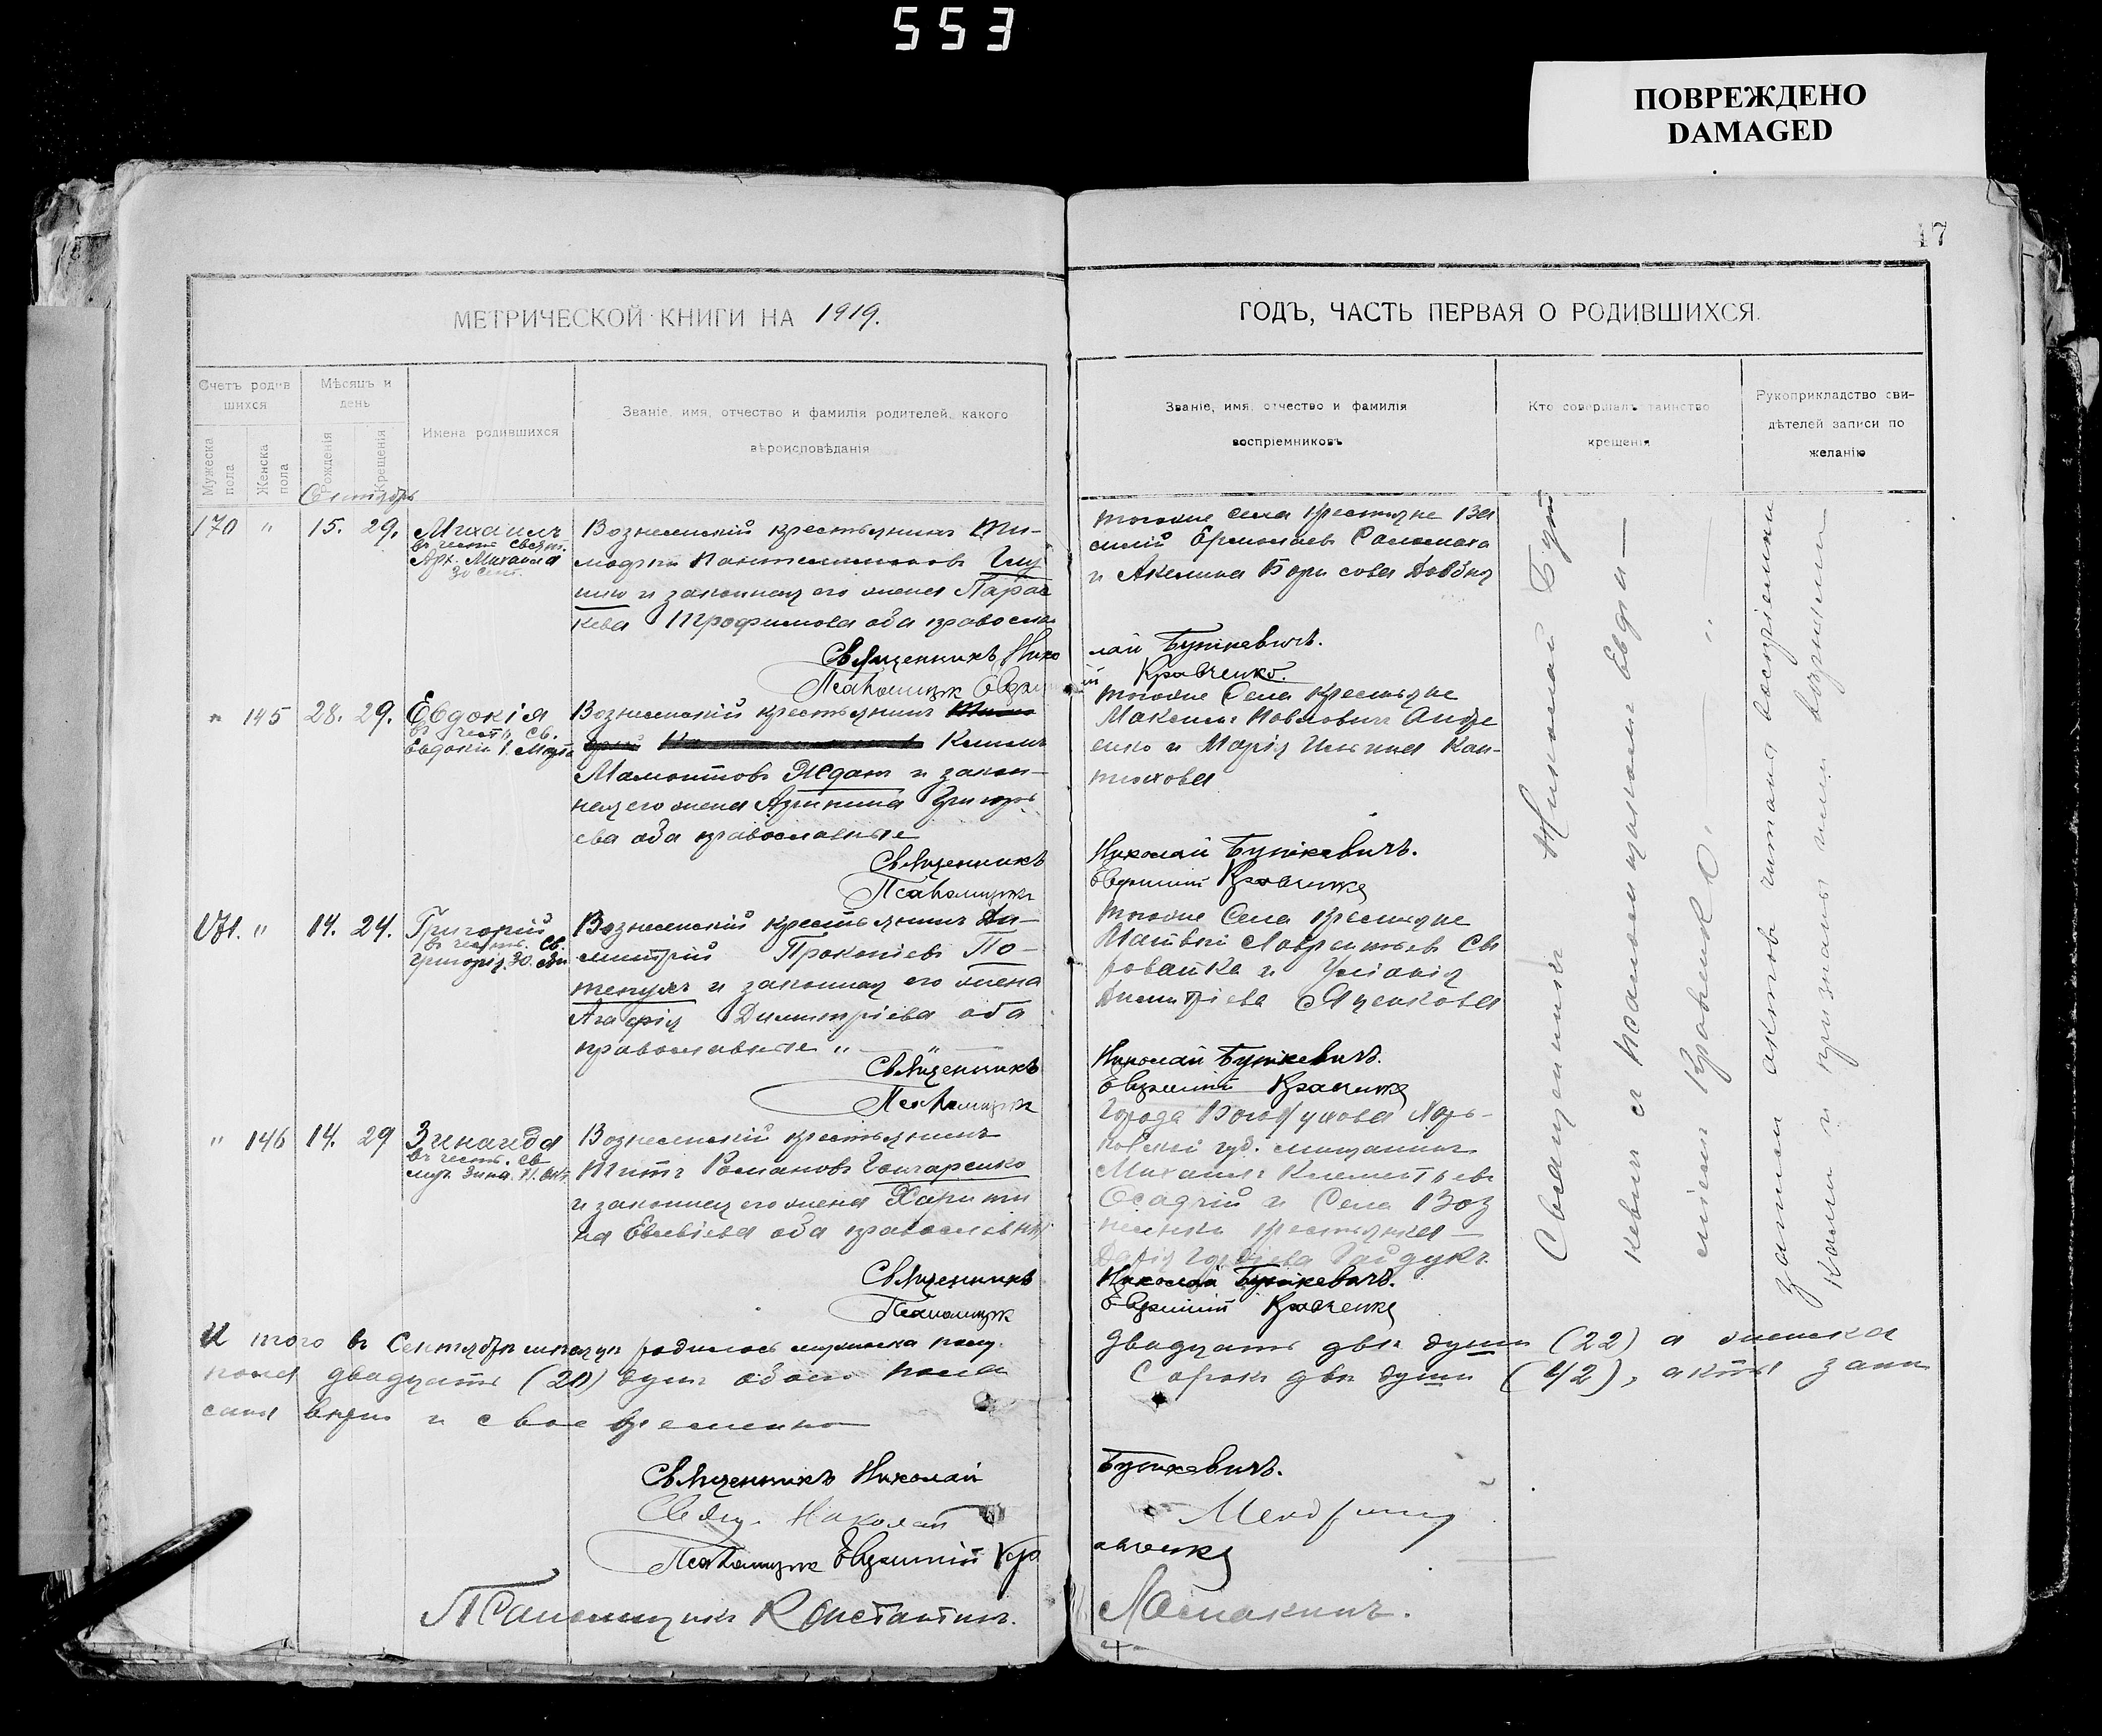 553
ПОВРЕЖДЕНО
DAMAGED
17
МЕТРИЧЕСКОЙ КНИГИ НА 1919.
ГОДЪ, ЧАСТЬ ПЕРВАЯ О РОДИВШИХСЯ.
Счетъ родив
шихся
Мужеска пола
Женска пола
Мѣсяцъ и
день
Рожденія
Крещенія
Имена родившихся
Званіе, имя, отчество и фамилія родителей, какого
вѣроисповѣданія
Званіе, имя, отчество и фамилія
воспріемниковъ
Кто совершалъ таинство
крещенія
Рукоприкладство сви-
дѣтелей записи по
желанію
Сентябрь
170 " 15. 29. Михаилъ
въ честь свят.
Арх. Михаила
30 сент.
Вознесенский крестьянинъ Ти-
мофей Пантелимоновъ
и законная его жена Парас
кева Трофимова оба православ
Священникъ Нико
Псаломщик Евфи
тогоже села крестьяне Ва
силій Ермолаевъ Саломаха
и Акелина Борисова
лай Буткевичъ.
й Кравченко.
" 145 28. 29. Евдокія
въ честь св.
Евдокіи 1. Марта
Вознесенскій крестьянинъ
Климъ
Мамонтовъ Ждан и закон-
ная его жена Агрипина Григорь
ева оба православные
Священникъ
Псаломщикъ
тогоже Села Крестьяне
Максимъ Павловичъ Андре
енко и Марія Ильина Кан-
тюкова
Николай Буткевичъ.
Евфимій Кравченко
" 14. 24. Григорий
въ честь. св.
Григорія. 30. Сен
Вознесенскій крестьянинъ Ди-
митрій Прокопіевъ По-
тапухъ и законная его жена
Агафія Димитріева оба
православные " — " —
Священникъ
Псаломщик
тогоже Села Крестьяне
Матвѣй Лаврентьевъ Св
Димитріева Яценкова
Николай Буткевичъ.
Евфимій Кравченко
" 146 14. 29 Зинаида
въ честь. св
муч. Зина. 11. окт
Вознесенскій крестьянинъ
Титъ Романовъ Гончаренко
и законная его жена Харити
на Евсевіева оба православные
Священникъ
Псаломщик
Города Богодухова Харь-
ковской губ. мещанинъ
Михаилъ Климентьевъ
Осадчій и Села Воз
несенки крестьянка —
Дарія Гордіева Гайдукъ
Николай Буткевичъ.
Евфимій Кравченко
Священникъ Николай Бут
кевич и Псаломщикъ Евфи —
міемъ Кравченко.
воспріемники
Итого въ Сентябре месяце родилось мужеска полу
двадцать две души (22) а женска
пола двадцать (20) душъ обоего пола
Сорокъ две души (42), акты запи
саны верно и своевременно
Священникъ Николай
Буткевичъ.
Свящ. Николай
Псаломщик Евфимій Кра
вченко
Псаломщикъ Константинъ
Ломакинъ.